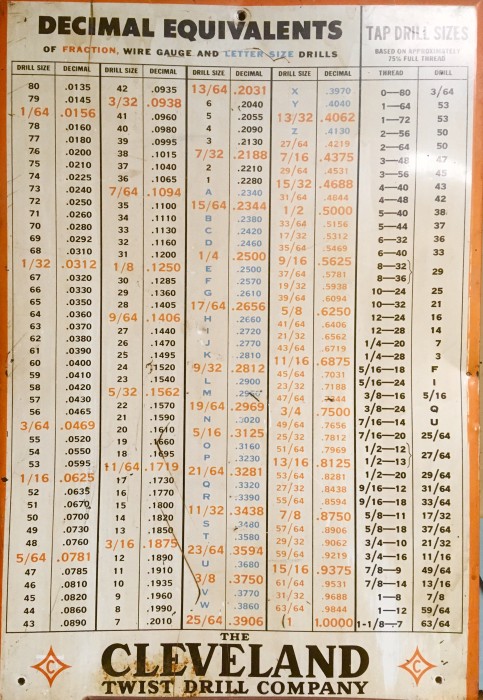 DECIMAL EQUIVALENTS
OF FRACTION, WIRE GAUGE AND LETTER SIZE DRILLS
DRILL SIZE DECIMAL
80 .0135
79 .0145
1/64 .0156
78 .0160
77 .0180
76 .0200
75 .0210
74 .0225
73 .0240
72 .0250
71 .0260
70 .0280
69 .0292
68 .0310
1/32 .0312
67 .0320
66 .0330
65 .0350
64 .0360
63 .0370
62 .0380
61 .0390
60 .0400
59 .0410
58 .0420
57 .0430
56 .0465
3/64 .0469
55 .0520
54 .0550
53 .0595
1/16 .0625
52 .0635
51 .0670
50 .0700
49 .0730
48 .0760
5/64 .0781
47 .0785
46 .0810
45 .0820
44 .0860
43 .0890
DRILL SIZE DECIMAL
42 .0935
3/32 .0938
41 .0960
40 .0980
39 .0995
38 .1015
37 .1040
36 .1065
7/64 .1094
35 .1100
34 .1110
33 .1130
32 .1160
31 .1200
1/8 .1250
30 .1285
29 .1360
28 .1405
9/64 .1406
27 .1440
26 .1470
25 .1495
24 .1520
23 .1540
5/32 .1562
22 .1570
21 .1590
20 .1610
19 .1660
18 .1695
11/64 .1719
17 .1730
16 .1770
15 .1800
14 .1820
13 .1850
3/16 .1875
12 .1890
11 .1910
10 .1935
9 .1960
8 .1990
7 .2010
DRILL SIZE DECIMAL
13/64 .2031
6 .2040
5 .2055
4 .2090
3 .2130
7/32 .2188
2 .2210
1 .2280
A .2340
15/64 .2344
B .2380
C .2420
D .2460
1/4 .2500
E .2500
F .2570
G .2610
17/64 .2656
H .2660
I .2720
J .2770
K .2810
9/32 .2812
L .2900
M
19/64 .2969
N .3020
5/16 .3125
O .3160
P .3230
21/64 .3281
Q .3320
R .3390
11/32 .3438
S .3480
T .3580
23/64 .3594
U .3680
3/8 .3750
V .3770
W .3860
25/64 .3906
DRILL SIZE DECIMAL
X .3970
Y .4040
13/32 .4062
Z .4130
27/64 .4219
7/16 .4375
29/64 .4531
15/32 .4688
31/64 .4844
1/2 .5000
33/64 .5156
17/32 .5312
35/64 .5469
9/16 .5625
37/64 .5781
19/32 .5938
39/64 .6094
5/8 .6250
41/64 .6406
21/32 .6562
43/64 .6719
11/16 .6875
45/64 .7031
23/32 .7188
47/64 .7344
3/4 .7500
49/64 .7656
25/32 .7812
51/64 .7969
13/16 .8125
53/64 .8281
27/32 .8438
55/64 .8594
7/8 .8750
57/64 .8906
29/32 .9062
59/64 .9219
15/16 .9375
61/64 .9531
31/32 .9688
63/64 .9844
1 1.0000
TAP DRILL SIZES
BASED ON APPROXIMATELY
75% FULL THREAD
THREAD DRILL
0—80 3/64
1—64 53
1—72 53
2—56 50
2—64 50
3—48 47
3—56 45
4—40 43
4—48 42
5—40 38
5—44 37
6—32 36
6—40 33
8—32
8—36 29
10—24 25
10—32 21
12—24 16
12—28 14
1/4—20 7
1/4—28 3
5/16—18 F
5/16—24 I
3/8—16 5/16
3/8—24 Q
7/16—14 U
7/16—20 25/64
1/2—12
1/2—13 27/64
1/2—20 29/64
9/16—12 31/64
9/16—18 33/64
5/8—11 17/32
5/8—18 37/64
3/4—10 21/32
3/4—16 11/16
7/8—9 49/64
7/8—14 13/16
1—8 7/8
1—12 59/64
1-1/8—7 63/64
THE
C CLEVELAND C
TWIST DRILL COMPANY